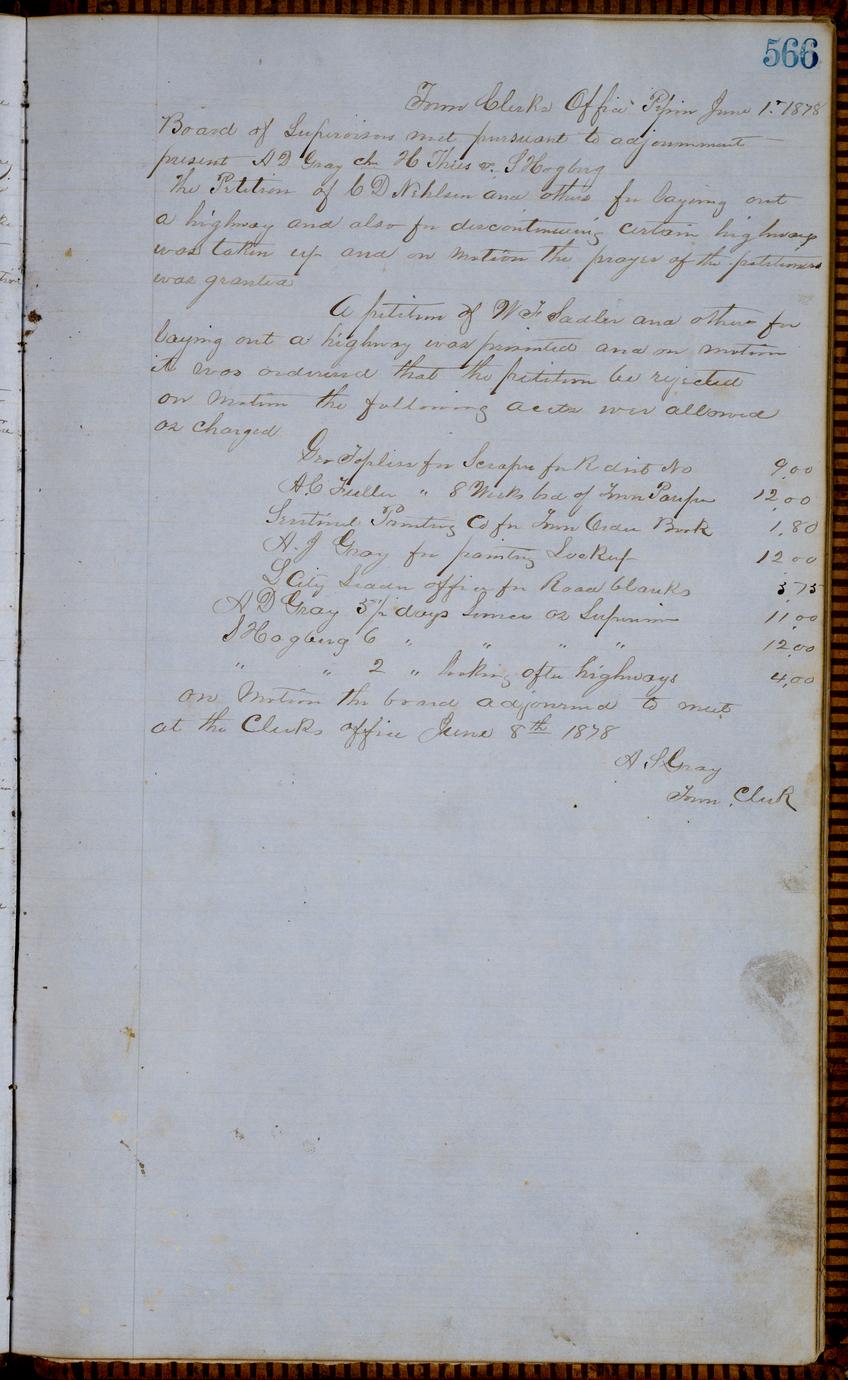 566
Town Clerks Office Pepin June 1st 1878
Board of Supervisors met pursuant to adjournment
present A D Gray ch H Thies & J Hogberg
The Petition of C D Nehlsen and others for laying out
a highway and also for discontinueing certain highways
was taken up and on motion the prayer of the petitioners
was granted
A petition of W F Sadler and others for
laying out a highway was presented and on motion
it was ordered that the petition be rejected
on motion the following accts wer allowed
as charged
Geo Topliss for Scraper for R dist No 9,00
A C Fuller " 8 Weeks bd of Town Pauper 12,00
Sentinel Printing Co for Town Order Book 1,80
A. J Gray for painting Lockup 12 00
L City Leader office for Road blanks 3 75
A D Gray 5 1/2 days Service as Supervisor 11,00
J Hogberg 6 " " " " 12,00
" " 2 " looking after highways 4,00
on motion the board adjourned to meet
at the Clerks office June 8th 1878
A S Gray
Town Clerk